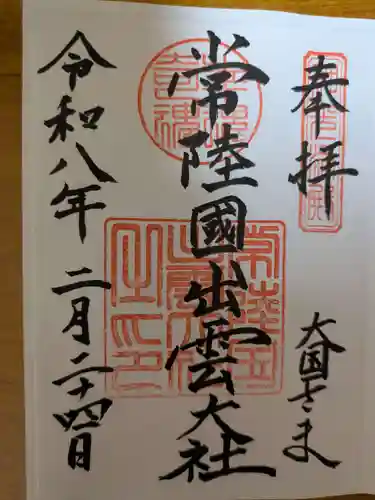 奉拝
大国さま
常陸國出雲大社
令和八年 二月二十四日